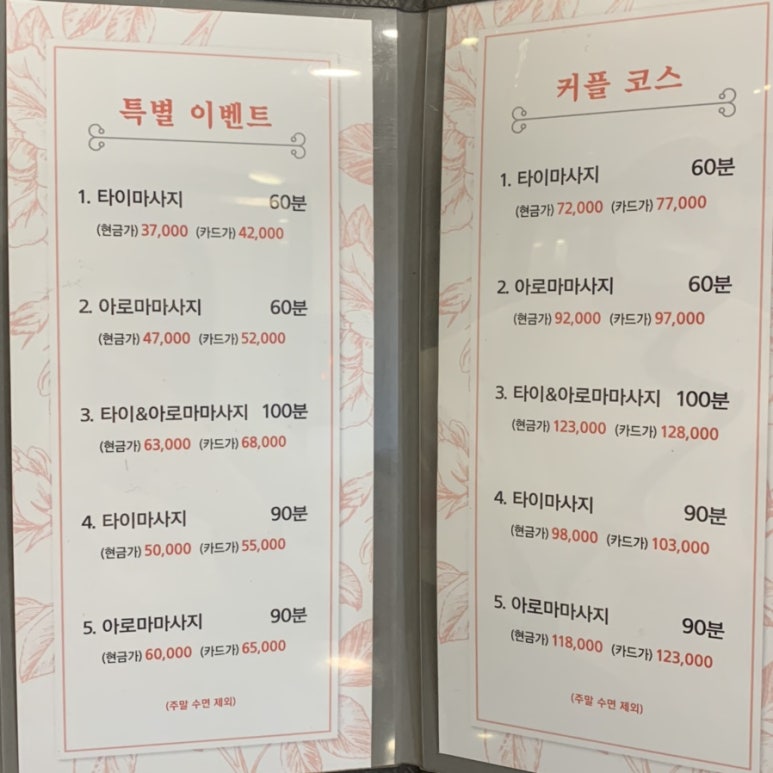 특별 이벤트
1. 타이마사지 60분
(현금가) 37,000 (카드가) 42,000
2. 아로마마사지 60분
(현금가) 47,000 (카드가) 52,000
3. 타이&아로마마사지 100분
(현금가) 63,000 (카드가) 68,000
4. 타이마사지 90분
(현금가) 50,000 (카드가) 55,000
5. 아로마마사지 90분
(현금가) 60,000 (카드가) 65,000
(주말 수면 제외)
커플 코스
1. 타이마사지 60분
(현금가) 72,000 (카드가) 77,000
2. 아로마마사지 60분
(현금가) 92,000 (카드가) 97,000
3. 타이&아로마마사지 100분
(현금가) 123,000 (카드가) 128,000
4. 타이마사지 90분
(현금가) 98,000 (카드가) 103,000
5. 아로마마사지 90분
(현금가) 118,000 (카드가) 123,000
(주말 수면 제외)